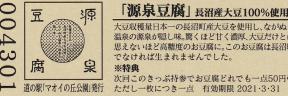 004301
源泉
豆腐
道の駅「マオイの丘公園」発行
「源泉豆腐」長沼産大豆100%使用
大豆収穫量日本一の長沼町産大豆を使用し、ながぬ
温泉の源泉が隠し味。驚くほど甘く濃厚、大豆だけと
思えないほど高糖度のお豆腐に。このお豆腐は長沼
でなければ生まれませんでした。
※特典
次回このきっぷ持参でお豆腐どれでも一点50円
ただし一枚につき一点 有効期限 2021・3・31